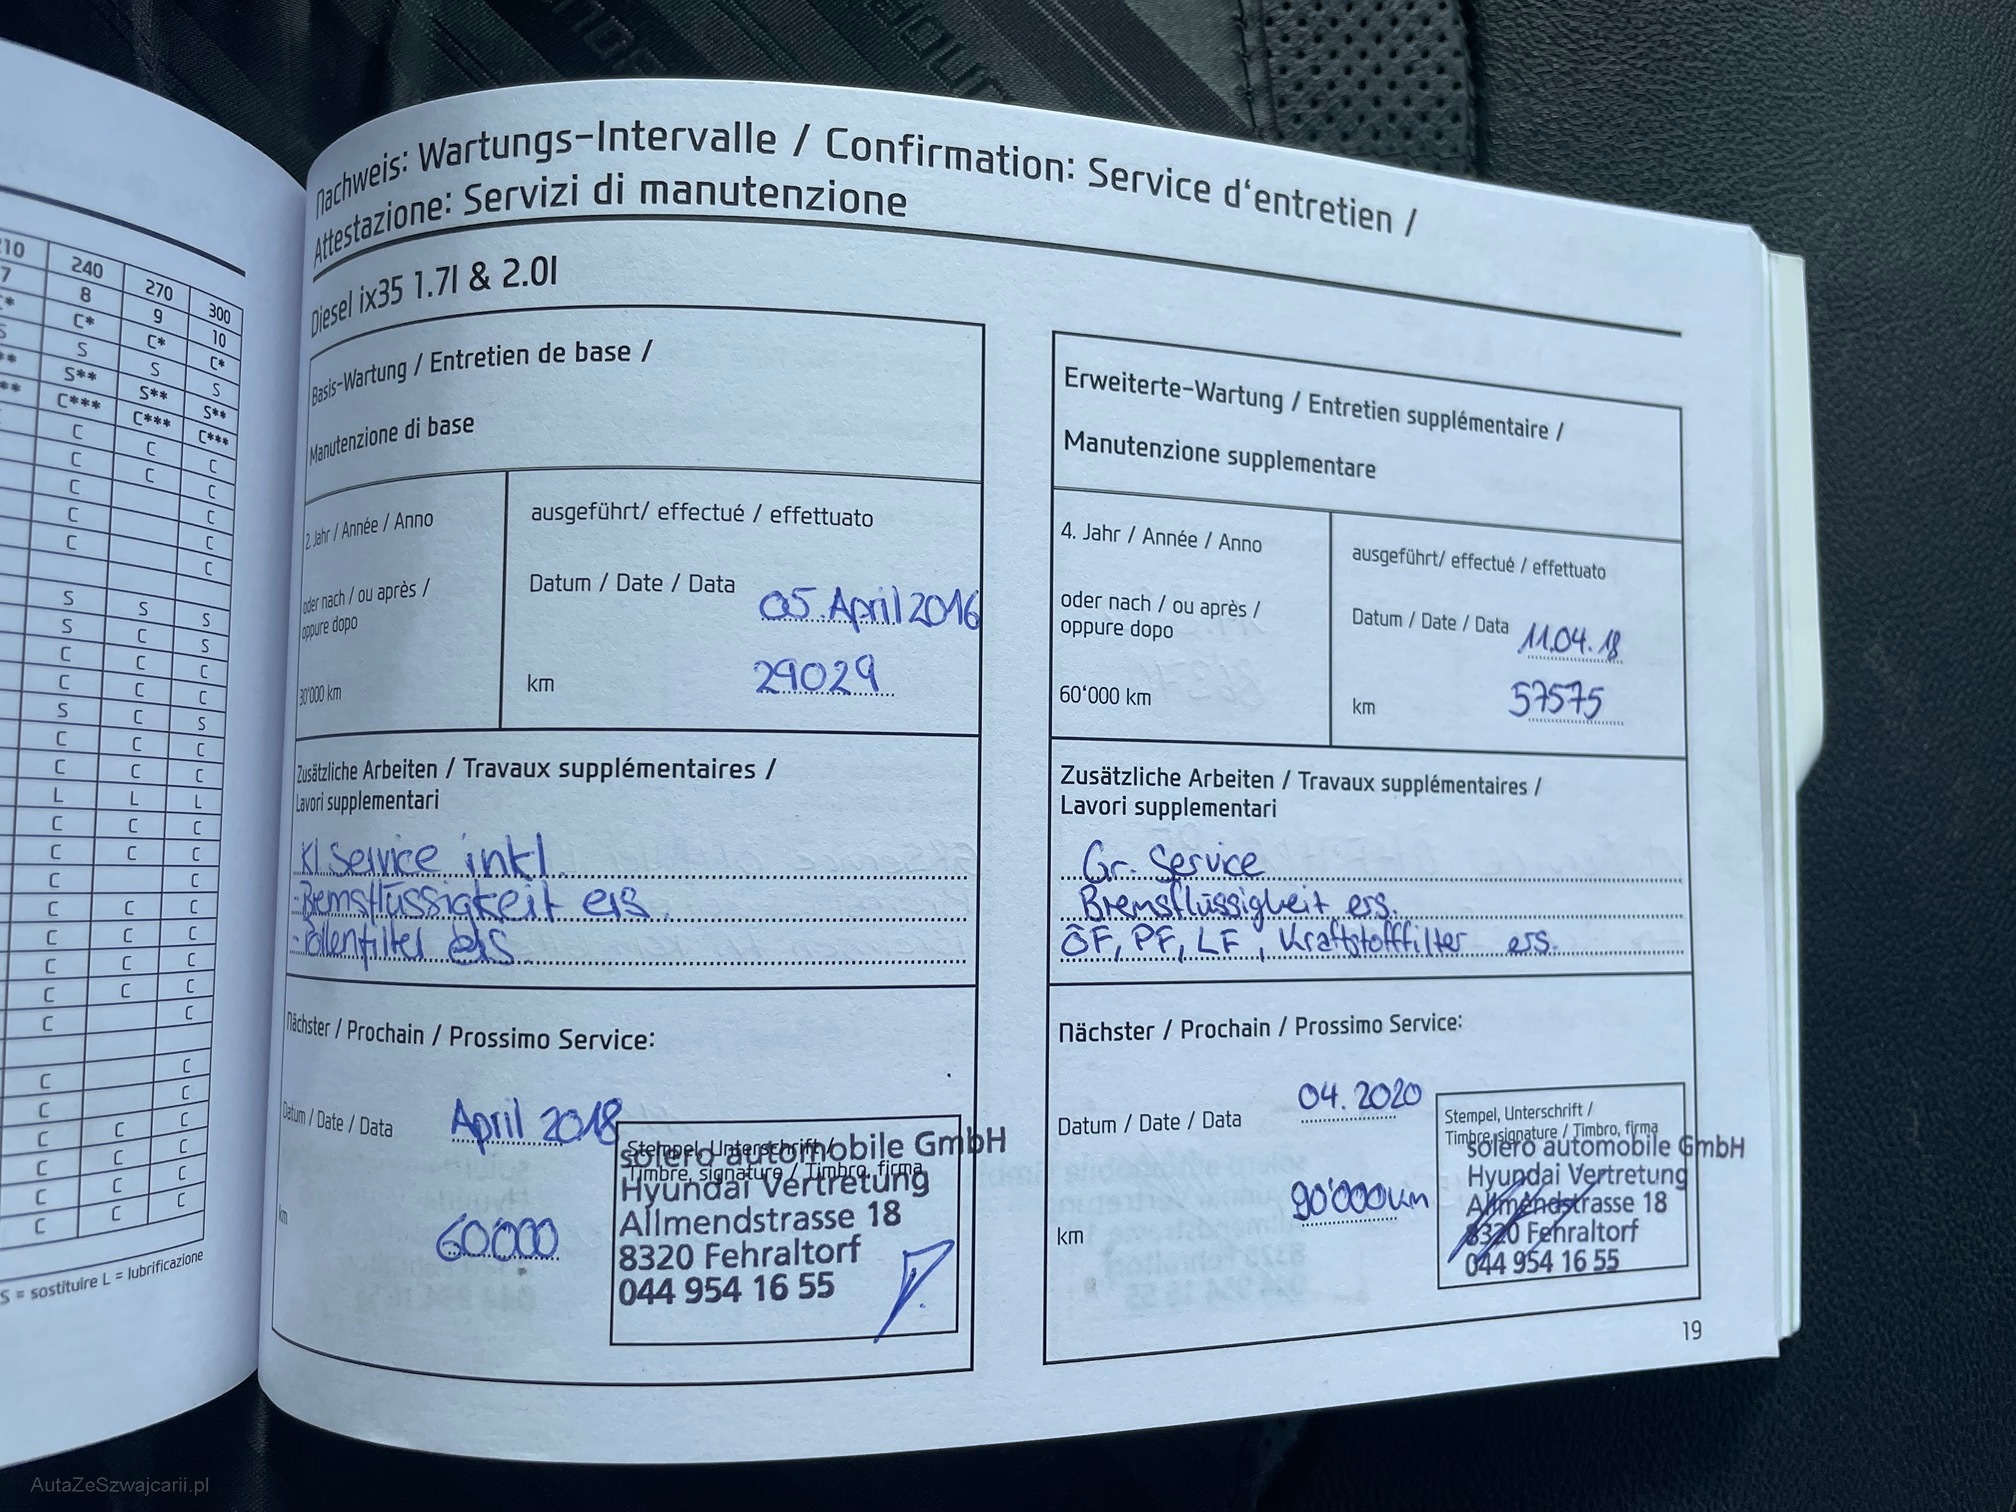 210 240 270 300
7 8 9 10
C* C* C* C*
S S S S
** S** S** S**
** C*** C*** C***
C C C
C C C
C C
C C
C C
C
S S S
S C S
C C C
C C C
S C S
C C C
C C C
L L L
C C C
C C C
C C
C C C
C C C
C C C
C C C
C C
C C
C C
C C C
C C C
C C C
C C C
S = sostituire L = lubrificazione
Nachweis: Wartungs-Intervalle / Confirmation: Service d'entretien /
Attestazione: Servizi di manutenzione
Diesel ix35 1.7l & 2.0l
Basis-Wartung / Entretien de base /
Manutenzione di base
2. Jahr / Année / Anno
oder nach / ou après /
oppure dopo
30'000 km
ausgeführt/ effectué / effettuato
Datum / Date / Data 05. April 2016
km 29029
Zusätzliche Arbeiten / Travaux supplémentaires /
Lavori supplementari
Kl. Service inkl.
-Bremsflüssigkeit ers.
-Pollenfilter ers.
Nächster / Prochain / Prossimo Service:
Datum / Date / Data April 2018
km 60000
Stempel, Unterschrift /
Timbre, signature / Timbro, firma
solero automobile GmbH
Hyundai Vertretung
Allmendstrasse 18
8320 Fehraltorf
044 954 16 55
Erweiterte-Wartung / Entretien supplémentaire /
Manutenzione supplementare
4. Jahr / Année / Anno
oder nach / ou après /
oppure dopo
60'000 km
ausgeführt/ effectué / effettuato
Datum / Date / Data 11.04.18
km 57575
Zusätzliche Arbeiten / Travaux supplémentaires /
Lavori supplementari
Gr. Service
Bremsflüssigkeit ers.
ÖF, PF, LF, Kraftstofffilter ers.
Nächster / Prochain / Prossimo Service:
Datum / Date / Data 04. 2020
km 90'000km
Stempel, Unterschrift /
Timbre, signature / Timbro, firma
solero automobile GmbH
Hyundai Vertretung
Allmendstrasse 18
8320 Fehraltorf
044 954 16 55
19
AutaZeSzwajcarii.pl